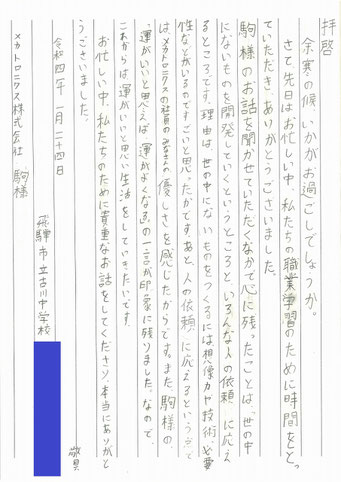 拝啓
余寒の候、いかがお過ごしでしょうか。
さて先日はお忙しい中、私たちの職業学習のために時間をとっ
ていただき、ありがとうございました。
駒様のお話を聞かせていただくなかで心に残ったことは、「世の中
にないものを開発していくというところと、いろんな人の依頼に応え
るところです。理由は、世の中にないものをつくるには、想像力や技術、必要
性などがいるのですごいと思ったからです。あと、人の依頼に応えるというところで
は、メカトロニクスの社員のみなさんの優しさを感じたからです。また、駒様の
「運がいいと思えば、運がよくなる」の一言が印象に残りました。なので、
これからは、運がいいと思い生活をしていきたいです。
お忙しい中、私たちのために貴重なお話をしてくださり本当にありがと
うございました。
敬具
令和四年 一月二十四日
飛騨市立古川中学校
メカトロニクス株式会社 駒様